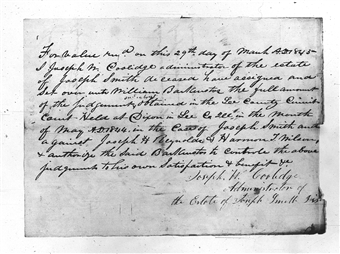 For value rec.d on this 29th day of March A.D. 1845
I Joseph W. Coolidge administrator of the estate
of Joseph Smith deceased have assigned and
Set over unto William Backenstos the full amount
of the judgment obtained in the Lee County Circuit
Court Held at Dixon in Lee Co Ill. in the Month
of May A.D. 1844, in the Case of Joseph Smith and
against Joseph H Reynolds & Harmon T Wilson,
& authorize the Said Backenstos to controle the above
judgment to his own Satisfaction & benefit &c
Joseph W. Coolidge
Administrator of
the Estate of Joseph Smith